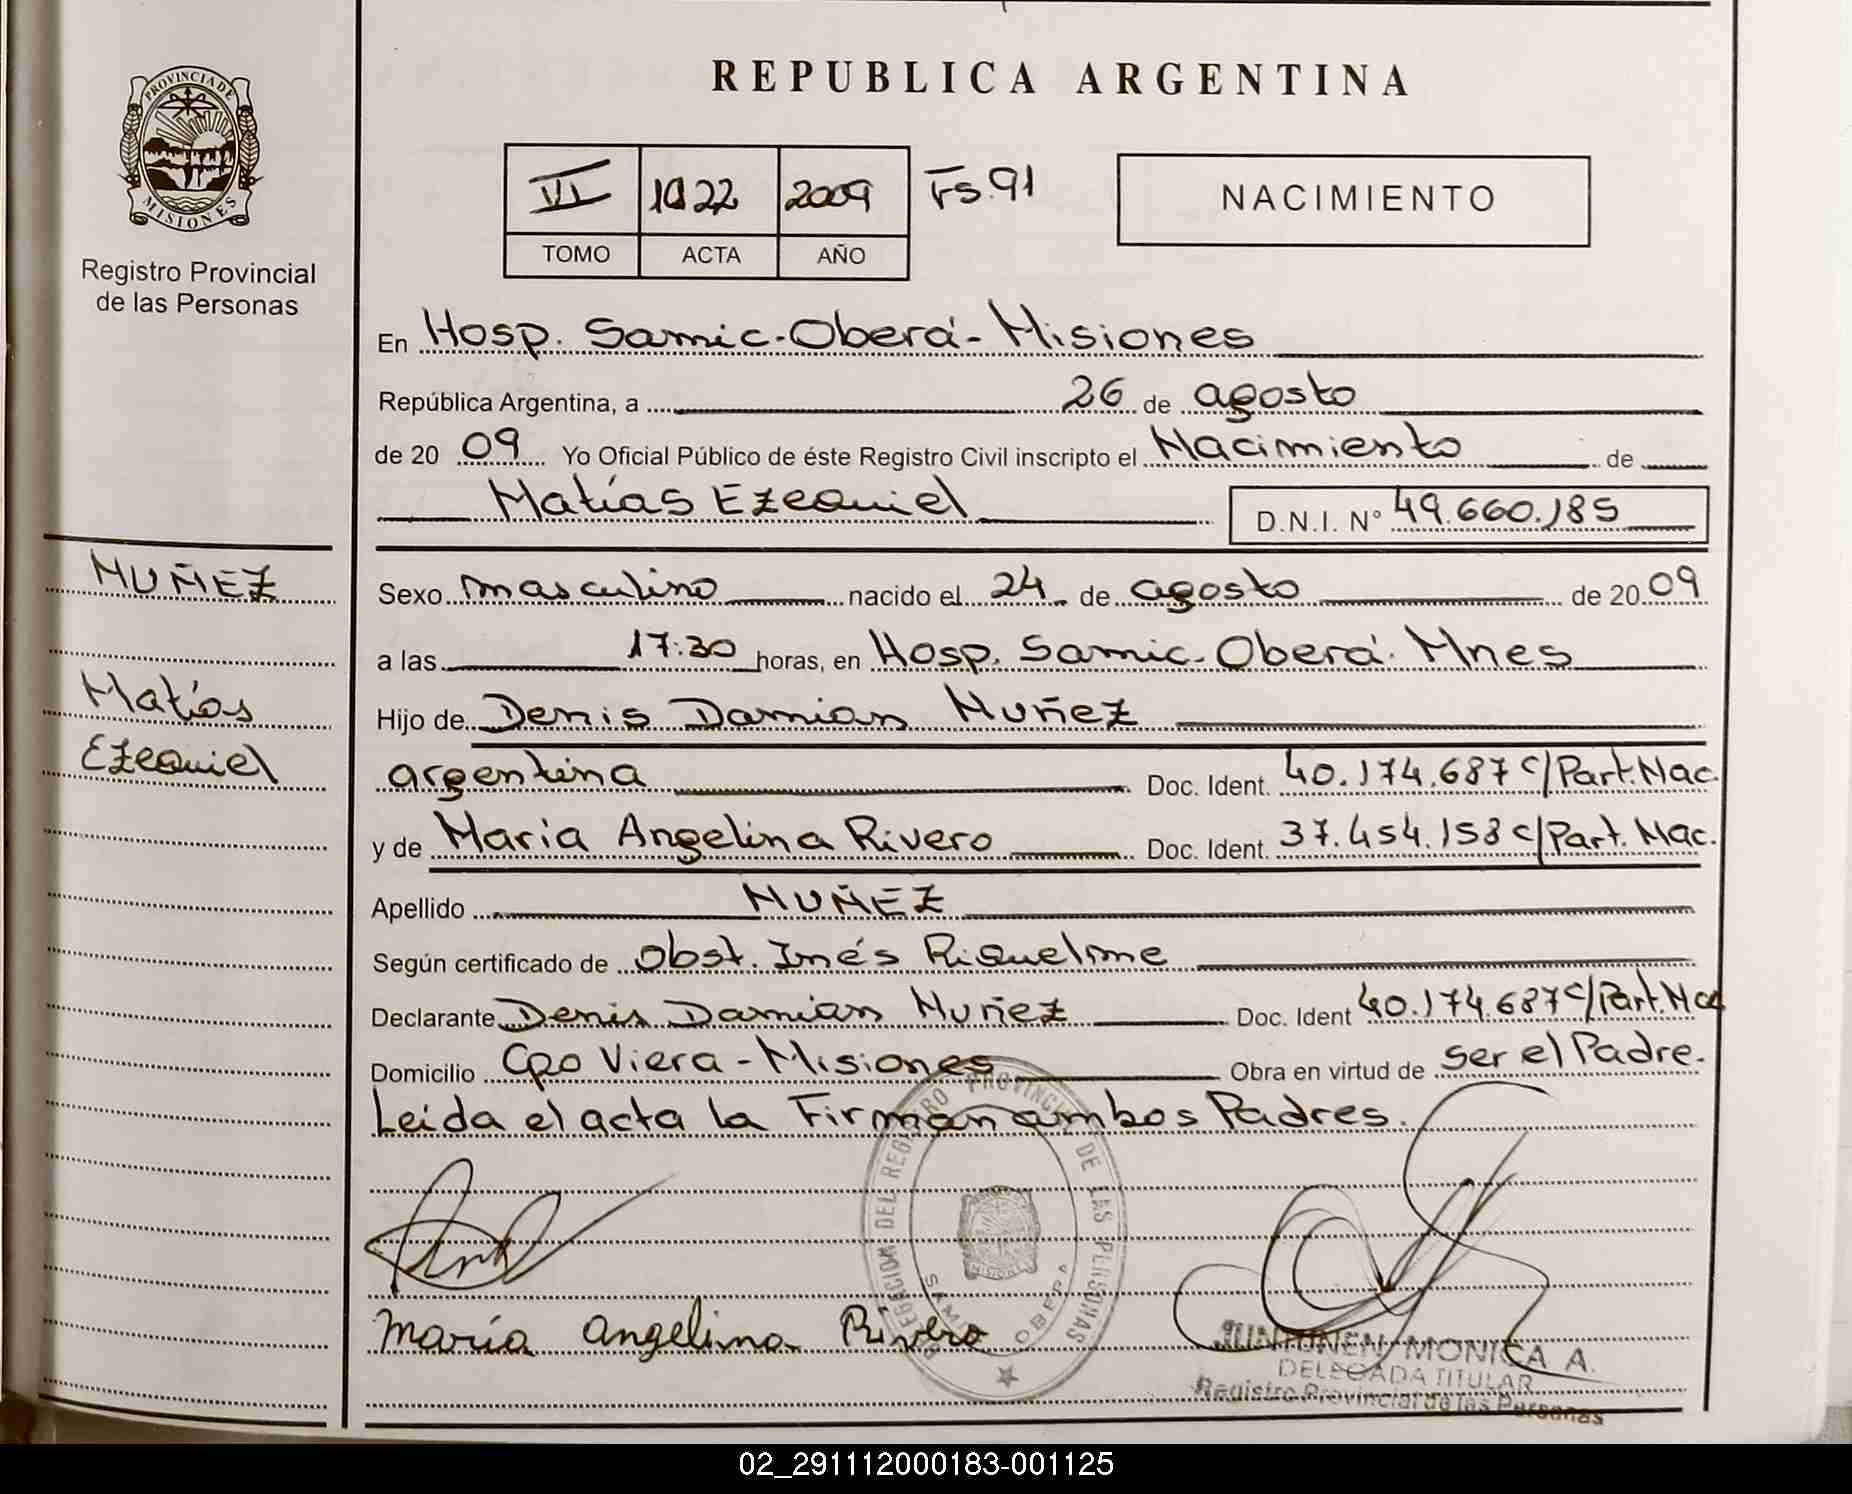 REPUBLICA ARGENTINA
PROVINCIA DE
MISIONES
Registro Provincial
de las Personas
VI 1022 2009 Fs. 91
TOMO ACTA AÑO
NACIMIENTO
En Hosp. Samic-Oberá-Misiones
República Argentina, a 26 de agosto
de 20 09 Yo Oficial Público de éste Registro Civil inscripto el Nacimiento de
Matías Ezequiel D.N.I. N° 49.660.185
NUÑEZ
Matías
Ezequiel
Sexo masculino nacido el 24 de agosto de 20 09
a las 17:30 horas, en Hosp. Samic-Oberá. Mnes
Hijo de Denis Damian Nuñez
argentina Doc. Ident. 40.174.687 C/Part.Nac.
y de Maria Angelina Rivero Doc. Ident. 37.454.153 C/Part. Nac.
Apellido NUÑEZ
Según certificado de Obst. Inés Riquelme
Declarante Denis Damian Nuñez Doc. Ident 40.174.687 C/Part.Nac
Domicilio Cpo Viera-Misiones Obra en virtud de ser el Padre.
Leida el acta la Firman ambos Padres.
DELEGACION DEL REGISTRO PROVINCIAL DE LAS PERSONAS
MISIONES
SAMIC OBERA
maría angelina Rivero
JUNTUNEN MONICA A.
DELEGADA TITULAR
Registro Provincial de las Personas
02_291112000183-001125